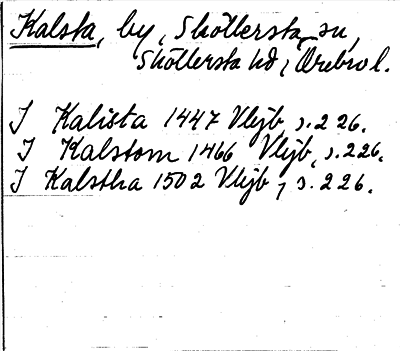 Kalsta, by, Sköllersta sn,
Sköllersta hd, Örebro l.
I Kalista 1447 Vlijb, s. 226.
I Kalstom 1466 Vlijb, s. 226.
I Kalstha 1502 Vlijb, s. 226.